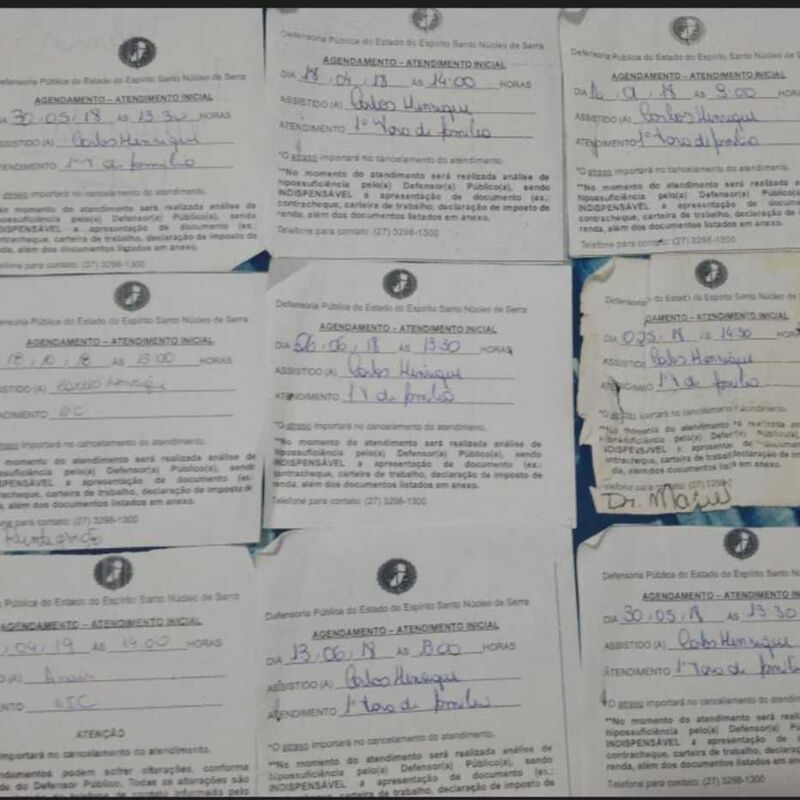 Defensoria Pública do Estado do Espírito Santo Núcleo de Serra
AGENDAMENTO – ATENDIMENTO INICIAL
30 , 05 , 18 ÀS 13 30 HORAS
ASSISTIDO (A) Carlos Henrique
ATENDIMENTO 1ª família
atraso importará no cancelamento do atendimento.
No momento do atendimento será realizada análise de
hipossuficiência pelo(a) Defensor(a) Público(a), sendo
INDISPENSÁVEL a apresentação de documento (ex.:
contracheque, carteira de trabalho, declaração de imposto de
renda, além dos documentos listados em anexo.
Telefone para contato: (27) 3298-1300
Defensoria Pública do Estado do Espírito Santo Núcleo de Serra
AGENDAMENTO – ATENDIMENTO INICIAL
DIA 18 , 04 , 18 ÀS 14:00 HORAS
ASSISTIDO (A) Carlos Henrique
ATENDIMENTO 1ª Vara de família
*O atraso importará no cancelamento do atendimento.
**No momento do atendimento será realizada análise de
hipossuficiência pelo(a) Defensor(a) Público(a), sendo
INDISPENSÁVEL a apresentação de documento (ex.:
contracheque, carteira de trabalho, declaração de imposto de
renda, além dos documentos listados em anexo.
Telefone para contato: (27) 3298-1300
Defensoria Pública do Estado do Espírito Santo Núcleo de S
AGENDAMENTO – ATENDIMENTO INICIAL
DIA , 9 , 18 ÀS 9:00 HORA
ASSISTIDO (A) Carlos Henrique
ATENDIMENTO 1ª Vara de família
*O atraso importará no cancelamento do atendimento.
**No momento do atendimento será realizada
hipossuficiência pelo(a) Defensor(a) Público(a)
INDISPENSÁVEL a apresentação de docume
contracheque, carteira de trabalho, declaração de
renda, além dos documentos listados em anexo.
Telefone para contato: (27) 3298-1300
Pública do Estado do Espírito Santo Núcleo de Serra
AGENDAMENTO – ATENDIMENTO INICIAL
18 , 10 , 18 ÀS 13:00 HORAS
Carlos Henrique
atraso importará no cancelamento do atendimento.
momento do atendimento será realizada análise de
pelo(a) Defensor(a) Público(a), sendo
a apresentação de documento (ex.:
carteira de trabalho, declaração de imposto de
além dos documentos listados em anexo.
para contato: (27) 3298-1300
Defensoria Pública do Estado do Espírito Santo Núcleo de Serra
AGENDAMENTO – ATENDIMENTO INICIAL
DIA 06 , 06 , 18 ÀS 13 30 HORAS
ASSISTIDO (A) Carlos Henrique
ATENDIMENTO 1ª V de família
*O atraso importará no cancelamento do atendimento.
**No momento do atendimento será realizada análise de
hipossuficiência pelo(a) Defensor(a) Público(a), sendo
INDISPENSÁVEL a apresentação de documento (ex.:
contracheque, carteira de trabalho, declaração de imposto de
renda, além dos documentos listados em anexo.
Telefone para contato: (27) 3298-1300
Defensoria do Estado do Espírito Santo Núcleo de
DAMENTO – ATENDIMENTO INICIAL
ÀS 14:30 HORAS
Carlos Henrique
1ª V de família
importará no cancelamento do atendimento.
No momento do atendimento será realizada
hipossuficiência pelo(a) Defensor(a)
INDISPENSÁVEL a apresentação de documento
contracheque, carteira de trabalho, declaração de
além dos documentos listados em anexo.
Telefone para contato: (27)
Dr.
Pública do Estado do Espírito Santo Núcleo de Serra
AGENDAMENTO – ATENDIMENTO INICIAL
, 04 , 19 ÀS 14:00 HORAS
ATENÇÃO
importará no cancelamento do atendimento.
podem sofrer alterações, conforme
do Defensor Público. Todas as alterações são
telefone de contato informado pelo
Defensoria Pública do Estado do Espírito Santo Núcleo de Serra
AGENDAMENTO – ATENDIMENTO INICIAL
DIA 13 , 06 , 18 ÀS HORAS
ASSISTIDO (A) Carlos Henrique
ATENDIMENTO 1ª Vara de família
*O atraso importará no cancelamento do atendimento.
**No momento do atendimento será realizada análise de
hipossuficiência pelo(a) Defensor(a) Público(a), sendo
INDISPENSÁVEL a apresentação de documento (ex.:
contracheque, carteira de trabalho, declaração de imposto de
Defensoria Pública do Estado do Espírito Santo Núcleo
AGENDAMENTO – ATENDIMENTO INICI
DIA 30 , 05 , 18 ÀS 13 30
ASSISTIDO (A) Carlos Henrique
ATENDIMENTO 1ª Vara de famíl
*O atraso importará no cancelamento do atendimento
**No momento do atendimento será realiza
hipossuficiência pelo(a) Defensor(a) Públic
INDISPENSÁVEL a apresentação de docu
contracheque, carteira de trabalho, declaração
renda, além dos documentos listados em anex
Telefone para contato: (27) 3298-1300